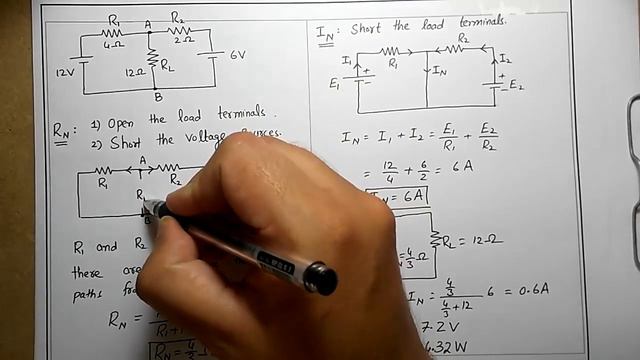 R₁
A
R₂
4Ω
2Ω
12V
12Ω
R_L
6V
B
R_N: 1) Open the load terminals.
2) Short the voltage
A
R₁
R₂
B
R₁ and R₂
there are
paths
R_N =
R_N = 4/3
I_N: Short the load terminals.
R₂
I₁
R₁
I_N
I₂
E₁
+
−
+
−
E₂
I_N = I₁ + I₂ = E₁/R₁ + E₂/R₂
= 12/4 + 6/2 = 6 A
I_N = 6A
4/3 Ω
R_L = 12Ω
I_N = (4/3)/(4/3 + 12) 6 = 0.6A
7.2 V
4.32 W